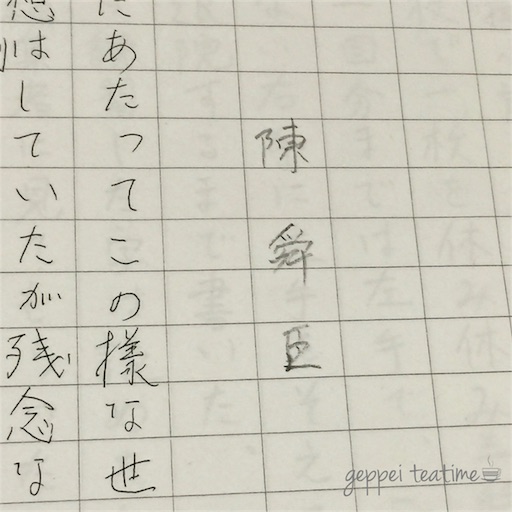 陳舜臣
にあたってこの様な世
想はしていたが残念な
geppei teatime